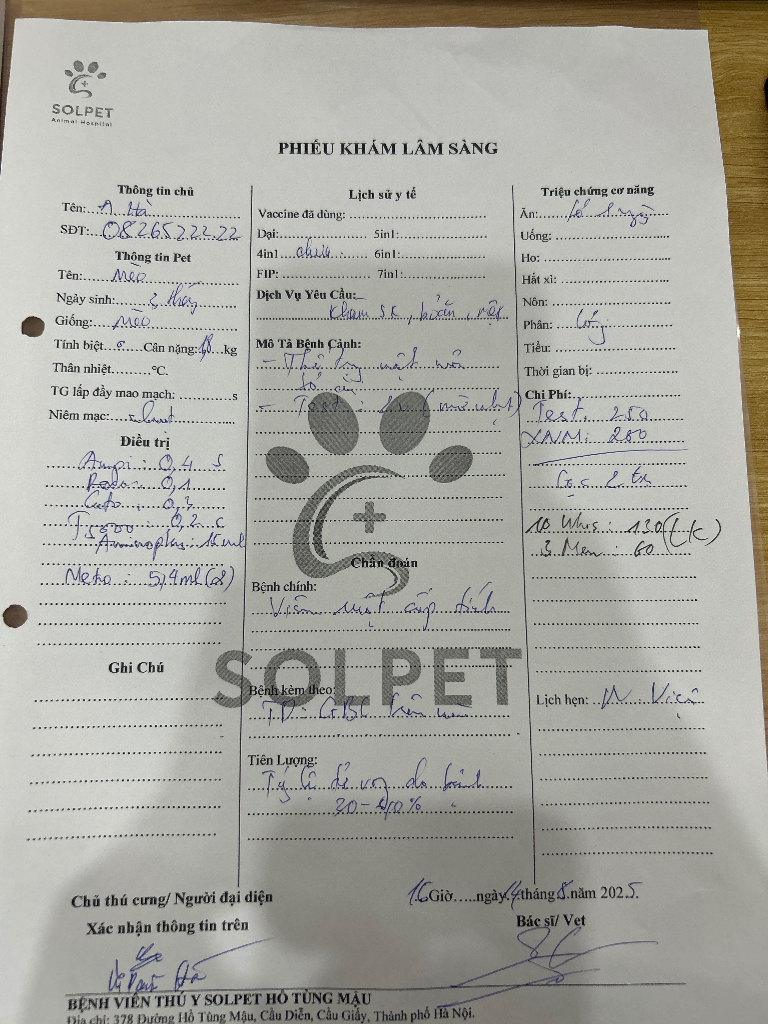 SOLPET
Animal Hospital
PHIẾU KHÁM LÂM SÀNG
Thông tin chủ
Tên: A Hà
SĐT: 0826522222
Thông tin Pet
Tên: Mèo
Ngày sinh: 2 tháng
Giống: Mèo
Tính biệt Cân nặng: kg
Thân nhiệt °C.
TG lấp đầy mao mạch: s
Niêm mạc: nhợt
Điều trị
Ampi: 0,4 S
0,1
Cato: 0,3
T5000 0,2 c
Aminoplas: 15 ml
Metro: 5,4ml (d8)
Ghi Chú
Lịch sử y tế
Vaccine đã dùng:
Dại: 5in1:
4in1 chưa 6in1:
FIP: 7in1:
Dịch Vụ Yêu Cầu:
Khám SK, buồn, mệt
Mô Tả Bệnh Cảnh:
- Thể trạng mệt mỏi
- Test:
Chẩn đoán
Bệnh chính:
Viêm ruột cấp tính
Bệnh kèm theo:
TD: GBC
Tiên Lượng:
Tỷ lệ tử vong do bệnh
30-40%
SOLPET
Triệu chứng cơ năng
Ăn: bỏ ngày
Uống:
Ho:
Hắt xì:
Nôn:
Phân: lỏng
Tiểu:
Thời gian bị:
Chi Phí:
Test: 250
XNM: 280
10 Whis: 130 (LK)
3 Men: 60
Lịch hẹn: N. Viện
Chủ thú cưng/ Người đại diện
Xác nhận thông tin trên
16 Giờ.....ngày 14 tháng 8 năm 2025.
Bác sĩ/ Vet
BỆNH VIỆN THÚ Y SOLPET HỒ TÙNG MẬU
Địa chỉ: 378 Đường Hồ Tùng Mậu, Cầu Diễn, Cầu Giấy, Thành phố Hà Nội.